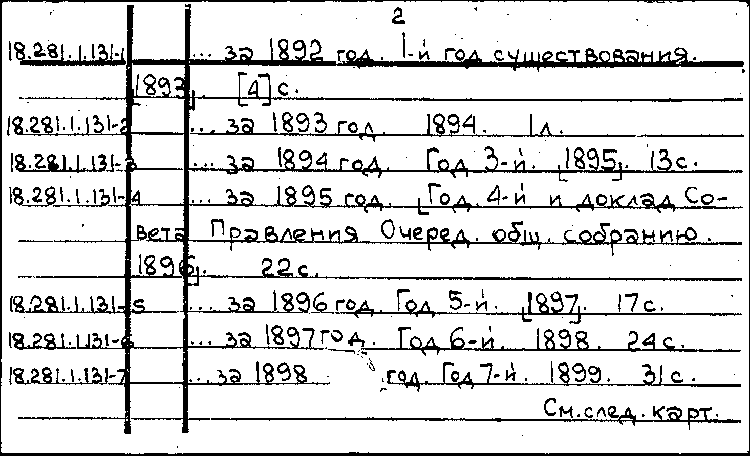 2
18.281.1.131-1 ... за 1892 год. 1-й год существования.
[1893]. [4] с.
18.281.1.131-2 ... за 1893 год. 1894. 1 л.
18.281.1.131-3 ... за 1894 год. Год 3-й. [1895]. 13 с.
18.281.1.131-4 ... за 1895 год. [Год 4-й и доклад Со-
вета Правления Очеред. общ. собранию.
1896]. 22 с.
18.281.1.131-5 ... за 1896 год. Год 5-й. [1897]. 17 с.
18.281.1.131-6 ... за 1897 год. Год 6-й. 1898. 24 с.
18.281.1.131-7 ... за 1898 год. Год 7-й. 1899. 31 с.
См. след. карт.